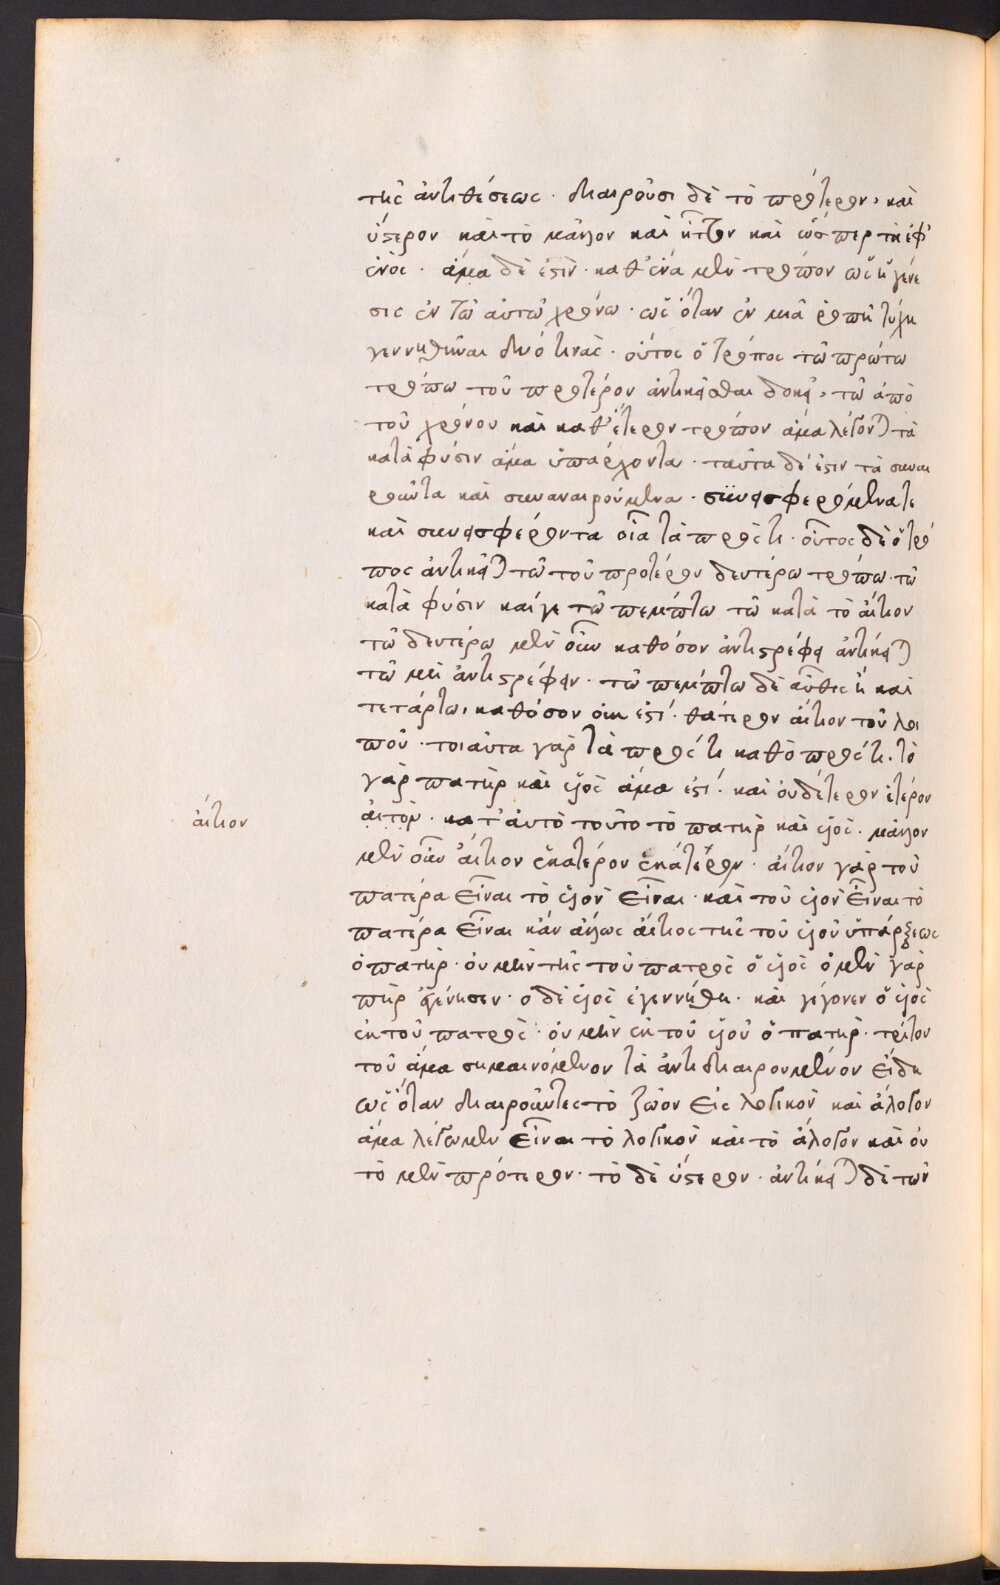 τῆς ἀντιθέσεως · διαιροῦσι δὲ τὸ πρότερον, καὶ
ὕστερον καὶ τὸ μᾶλλον καὶ ἧττον καὶ ὥσπερ τὰ ἐφ'
ἑνός · ἅμα δέ ἐστιν · καθ' ἕνα μὲν τρόπον ὡς ἡ γένε
σις ἐν τῶ αὐτῶ χρόνω · ὡς ὅταν ἐν μιᾶ ῥοπῆ τύχη
γεννηθῆναι δύό τινας · οὗτος ὁ τρόπος τῶ πρώτω
τρόπω τοῦ προτέρου ἀντικεῖσθαι δοκεῖ, τῶ ἀπὸ
τοῦ χρόνου καὶ καθ' ἕτερον τρόπον ἅμα λέγονται τὰ
κατὰ φύσιν ἅμα ὑπάρχοντα · ταῦτα δέ ἐστιν τὰ συναι
ροῦντα καὶ συναναιρούμενα · συνεισφερόμενά τε
καὶ συνεισφέροντα οἷα τὰ πρός τι · οὗτος δὲ ὁ τρό
πος ἀντίκειται τῶ τοῦ προτέρου δευτέρω τρόπω · τῶ
κατὰ φύσιν καί γε τῶ πέμπτω τῶ κατὰ τὸ αἴτιον
τῶ δευτέρω μὲν οὖν καθόσον ἀντιστρέφει ἀντίκειται
τῶ μὴ ἀντιστρέφειν · τῶ πέμπτω δὲ αὖθις ἢ καὶ
τετάρτω, καθόσον οὐκ ἐστί · θάτερον αἴτιον τοῦ λοι
ποῦ · τοιαῦτα γὰρ τὰ πρός τι καθὸ πρός τι · τὸ
γὰρ πατὴρ καὶ υἱὸς ἅμα ἐστί · καὶ οὐδέτερον ἑτέρου
αἰτον · κατ' αὐτὸ τοῦτο τὸ πατὴρ καὶ υἱός · μᾶλλον
αἴτιον
μὲν οὖν αἴτιον ἑκατέρου ἑκάτερον · αἴτιον γὰρ τοῦ
πατέρα εἶναι τὸ υἱὸν εἶναι · καὶ τοῦ υἱὸν εἶναι τὸ
πατέρα εἶναι κἂν ἄλλως αἴτιος τῆς τοῦ υἱοῦ ὑπάρξεως
ὁ πατήρ · οὐ μὴν τῆς τοῦ πατρὸς ὁ υἱός ὁ μὲν γὰρ
πὴρ ἐγέννησεν · ὁ δὲ υἱὸς ἐγεννήθη · καὶ γέγονεν ὁ υἱὸς
ἐκ τοῦ πατρός · οὐ μὴν ἐκ τοῦ υἱοῦ ὁ πατήρ · τρίτον
τοῦ ἅμα σημαινόμενον τὰ ἀντιδιαιρουμένον εἴδη
ὡς ὅταν διαιροῦντες τὸ ζῶον εἰς λογικὸν καὶ ἄλογον
ἅμα λέγωμεν εἶναι τὸ λογικὸν καὶ τὸ ἄλογον καὶ οὐ
τὸ μὲν πρότερον · τὸ δὲ ὕστερον · ἀντίκειται δὲ τῶν